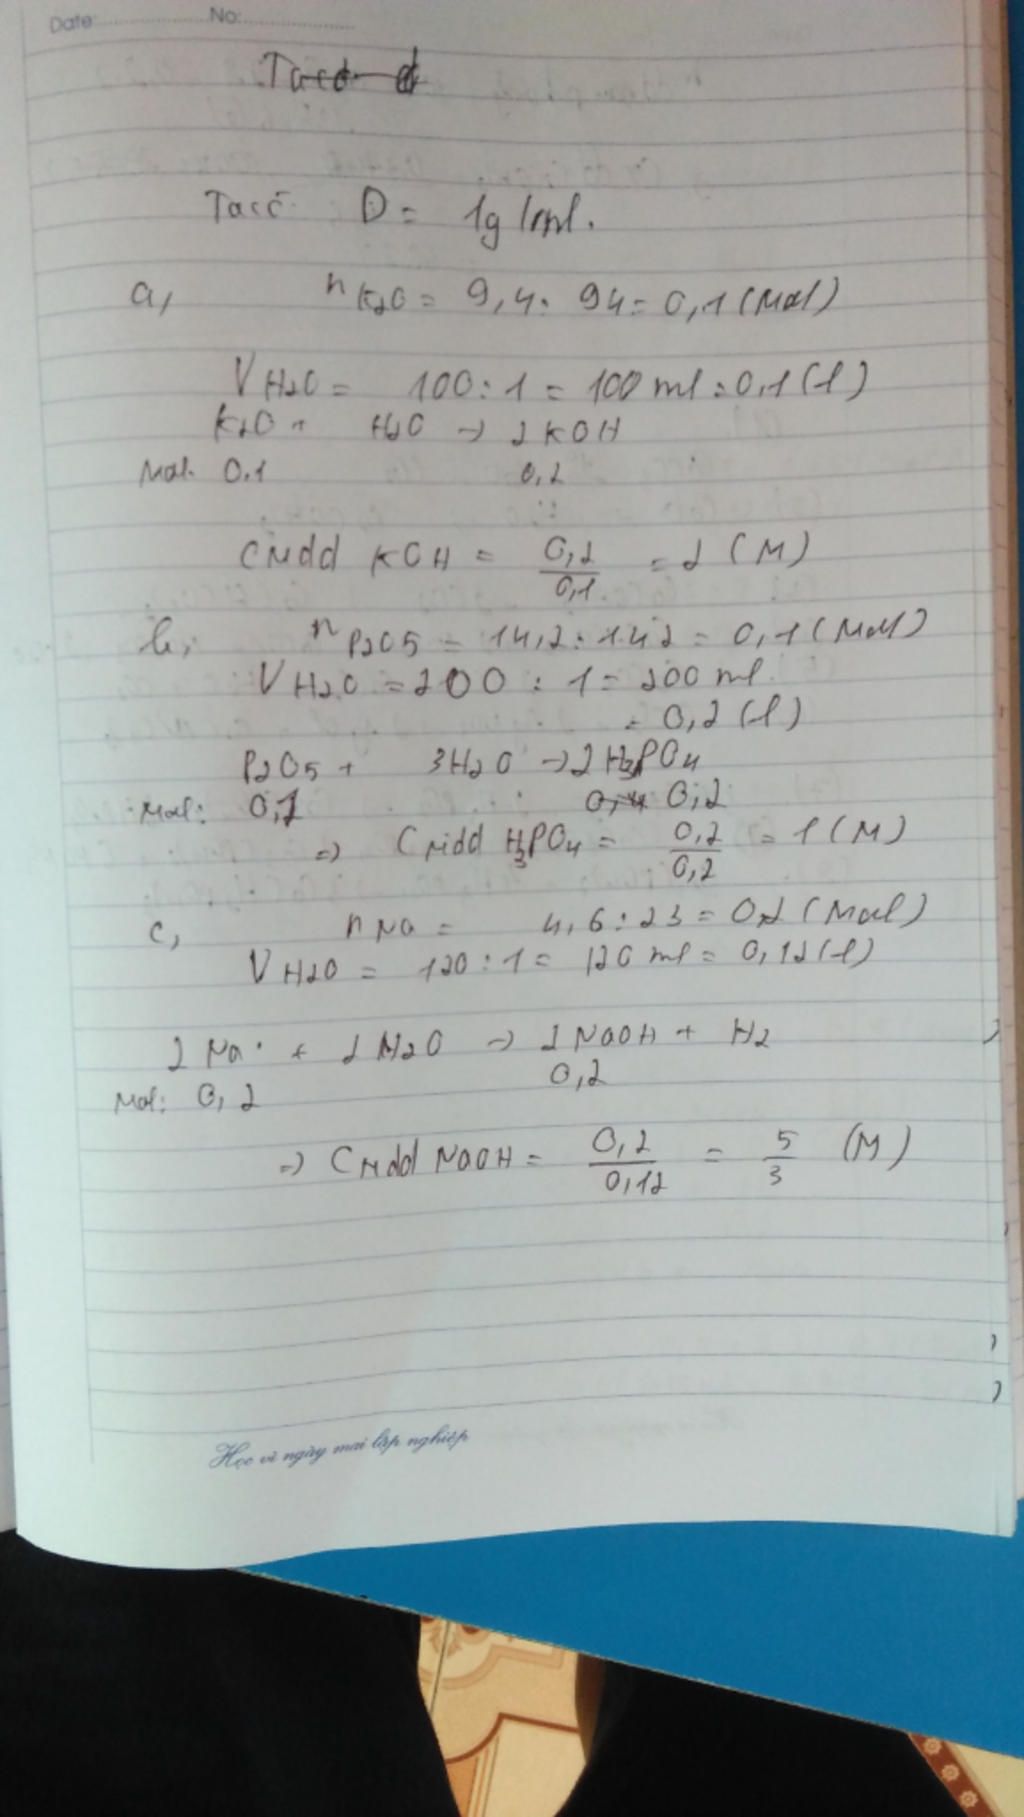 Date: No:
Ta có D = 1g/ml.
a, nK2O = 9,4 : 94 = 0,1 (Mol)
VH2O = 100 : 1 = 100 ml = 0,1 (l)
K2O + H2O → 2KOH
Mol: 0,1 0,2
CMdd KOH = 0,2/0,1 = 2 (M)
b, nP2O5 = 14,2 : 142 = 0,1 (Mol)
VH2O = 200 : 1 = 200 ml
= 0,2 (l)
P2O5 + 3H2O → 2H3PO4
Mol: 0,1 0,2
=> CMdd H3PO4 = 0,2/0,2 = 1 (M)
c, nNa = 4,6 : 23 = 0,2 (Mol)
VH2O = 120 : 1 = 120 ml = 0,12 (l)
2Na + 2H2O → 2NaOH + H2
Mol: 0,2 0,2
=> CMdd NaOH = 0,2/0,12 = 5/3 (M)
Học vì ngày mai lập nghiệp